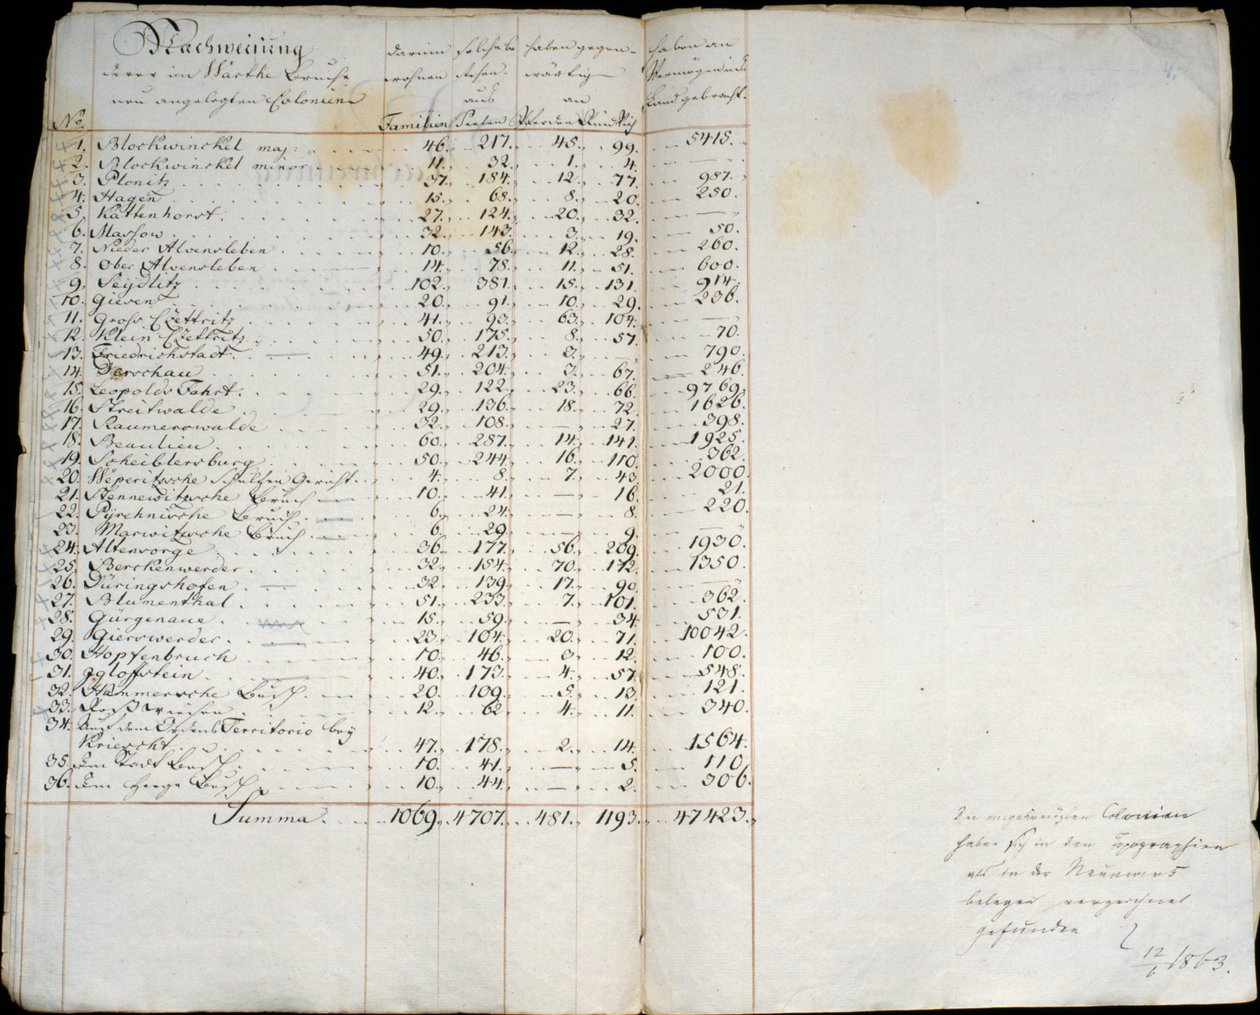 Nachweisung
derer im Warthe Bruche
neu angelegten Colonien
darinn wohnen Familien
solche bestehen aus Seelen
haben gegenwärtig an Pferden Rindvieh
haben an Vermögen ins Land gebracht.
No.
1. Blockwinckel maj: 46. 217. 45. 99. 5415.
2. Blockwinckel minor 11. 32. 1. 4. —
3. Plonitz 37. 184. 12. 77. 987.
4. Hagen 15. 68. 8. 20. 250.
5. Kattenhorst. 27. 124. 20. 32. —
6. Massow 32. 143. 3. 19. 50.
7. Nieder Alvensleben 10. 56. 12. 28. 260.
8. Ober Alvensleben 14. 78. 11. 51. 600.
9. Seydlitz 102. 381. 15. 131. 914.
10. Gieven 20. 91. 10. 29. 236.
11. Gross Czettritz 41. 93. 63. 104. —
12. Klein Czettritz 50. 175. 8. 57. 70.
13. Friedrichstadt. 49. 213. 3. — 790.
14. Derschau 51. 204. 3. 67. 246.
15. Leopolds Fahrt. 29. 122. 23. 66. 9769.
16. Streitwalde 29. 136. 18. 72. 1626.
17. Raumerswalde 32. 108. — 27. 398.
18. Beaulieu 60. 287. 14. 141. 1925.
19. Scheiblersburg 50. 244. 16. 110. 362.
20. Weperitzsche Schultzen Gericht 4. 8. 7. 43. 2000
21. Stennewitzsche Bruch 10. 41. — 16. 21.
22. Pyrehnische Bruch. 6. 24. — 8. 220.
23. Marwitzsche Bruch 6. 29. — 9. —
24. Altensorge 36. 177. 56. 209. 1930.
25. Berckenwerder 32. 154. 70. 172. 1350.
26. Düringshofen 32. 139. 17. 90. —
27. Blumenthal 51. 233. 7. 101. 362.
28. Gürgenaue 15. 59. — 34. 531.
29. Gierswerder 23. 104. 20. 71. 10042.
30. Hopfenbruch 10. 46. 3. 12. 100.
31. ggloffstein 40. 173. 4. 57. 548.
32. Hammersche Busch. 20. 109. 5. 13. 121.
33. Roß Wiesen 12. 62. 4. 11. 340.
34. Auf dem Ordens Territorio bey
Kriescht 47. 178. 2. 14. 1564.
35. dem Stadt Busch 10. 41. — 5. 110.
36. dem Busch 10. 44. — 2. 306.
Summa 1069. 4707. 481. 1193. 47423.
Die Colonien
haben sich in den Topographien
als in der Neumark
belegen verzeichnet
gefunden
12/6 1863.